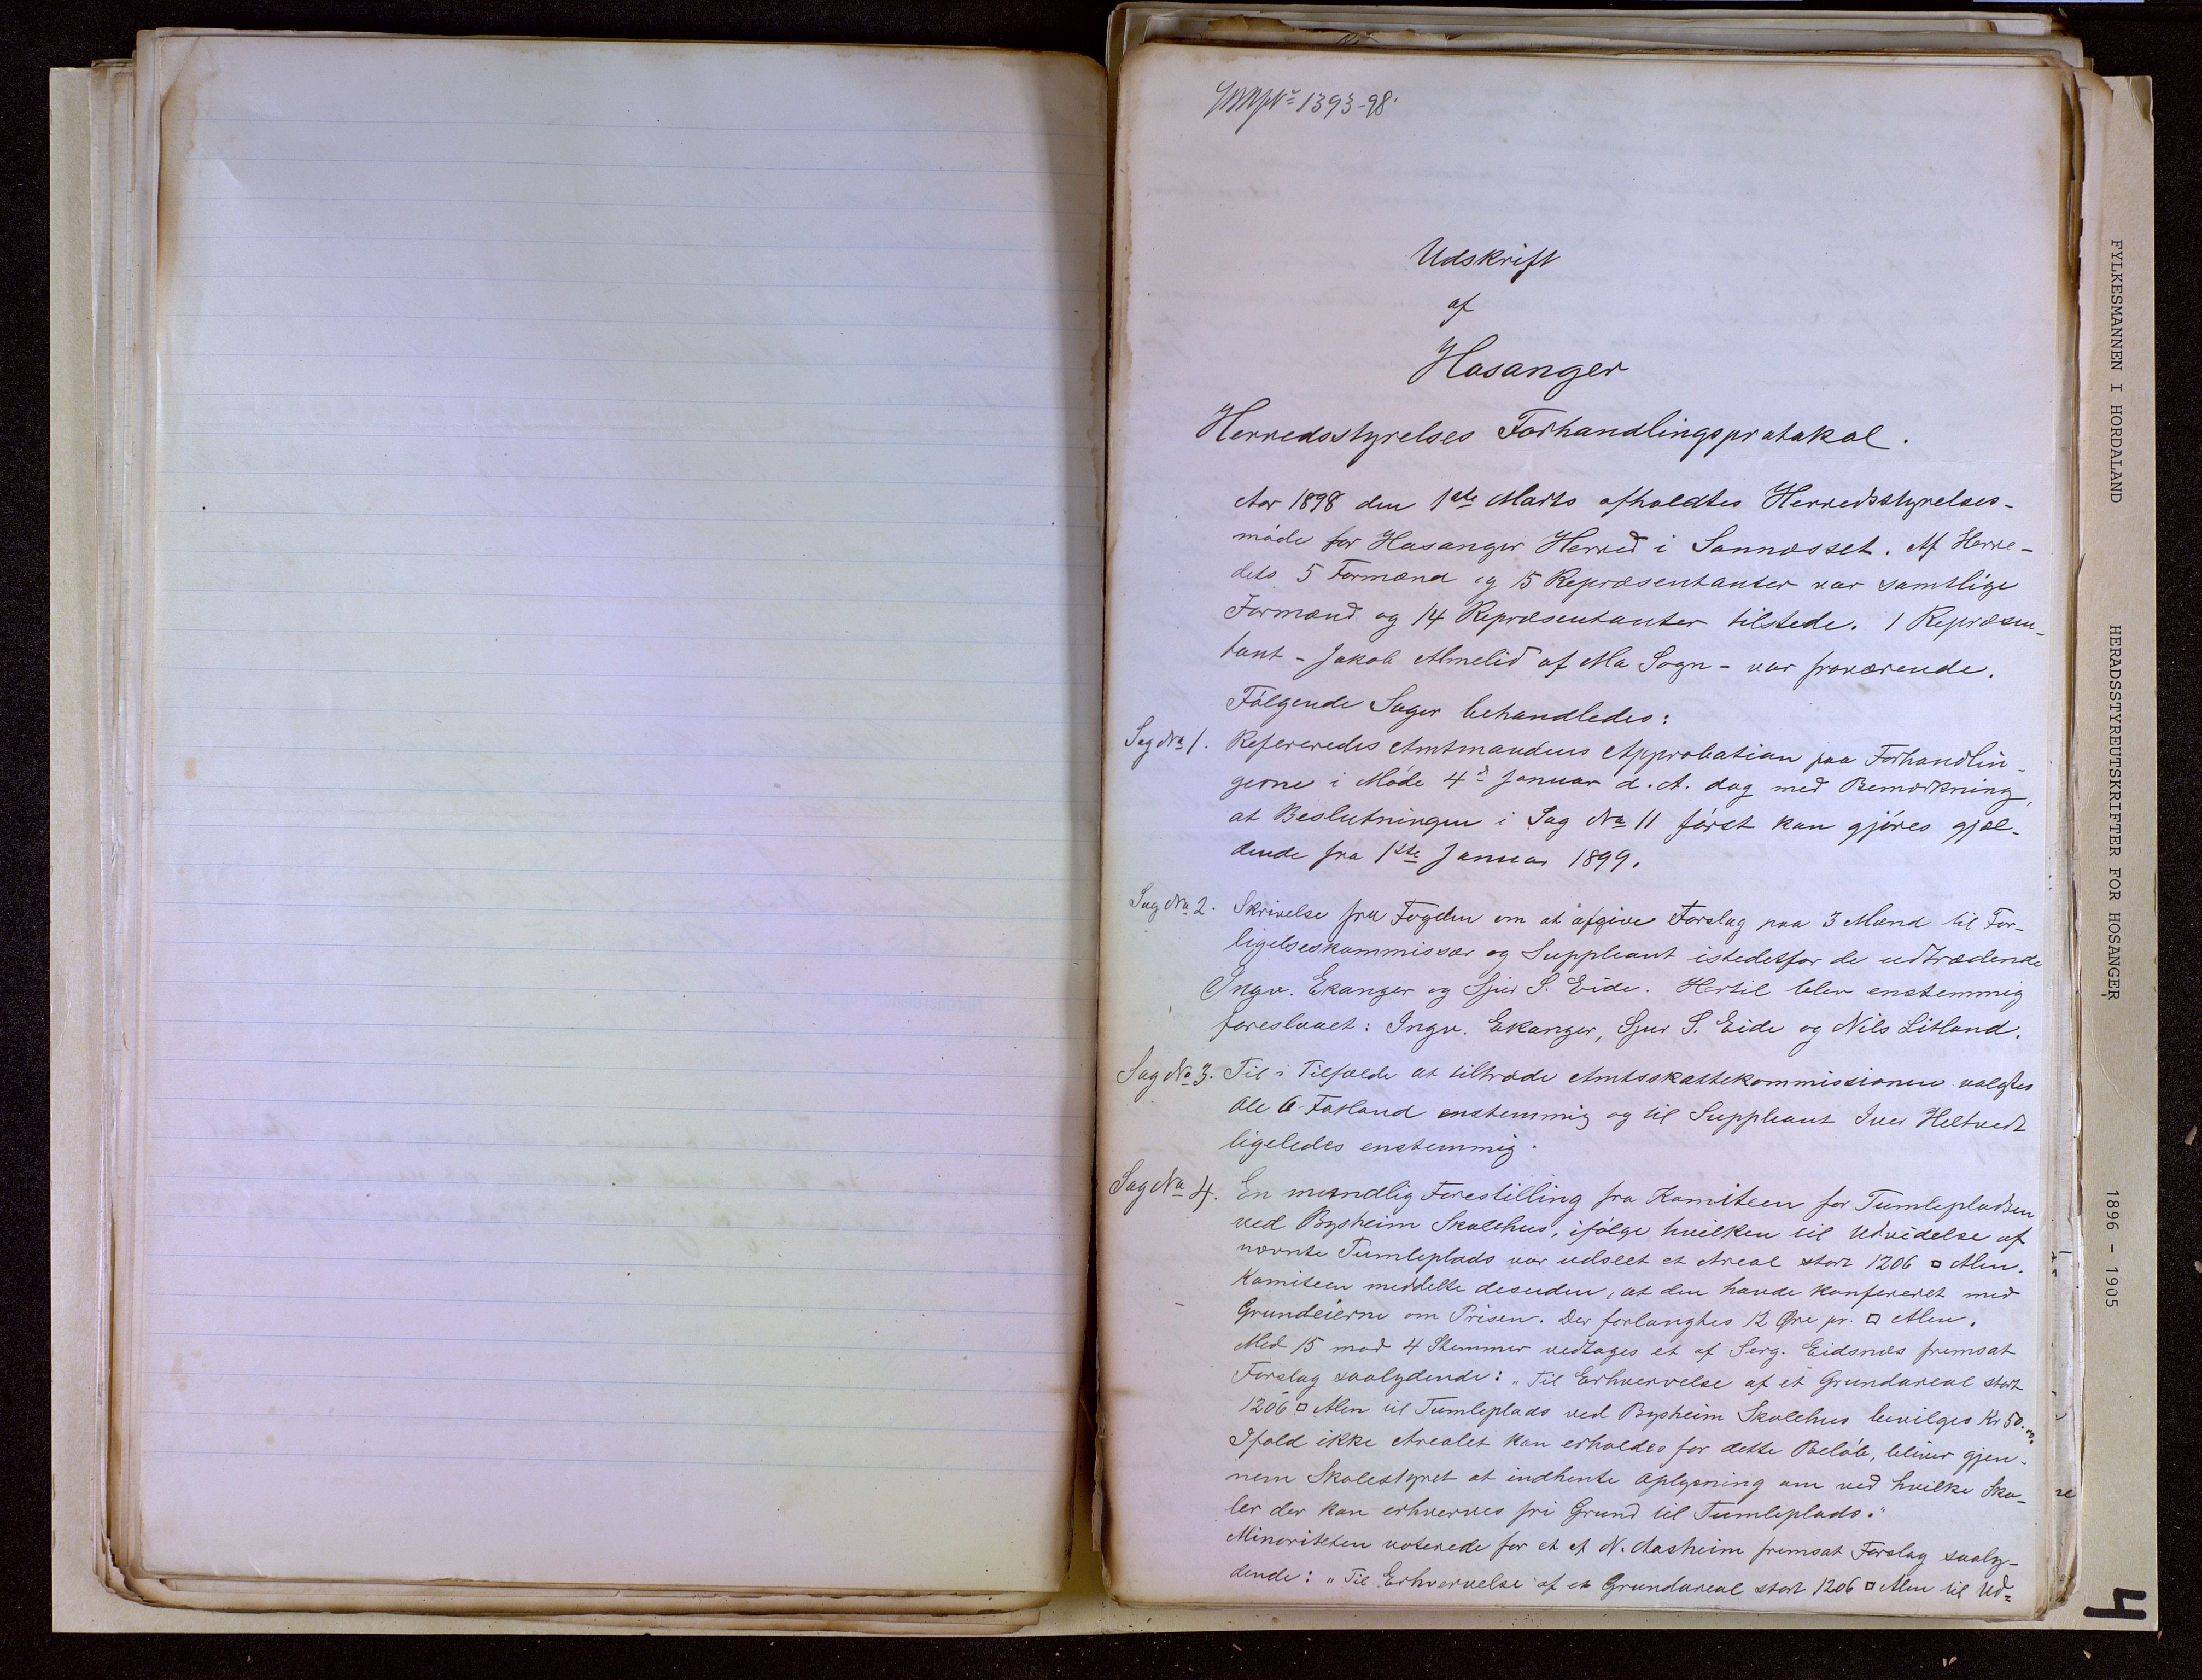 No 1393-98.
Udskrift
af
Hosanger
Herredsstyrelses Forhandlingsprotokol.
Aar 1898 den 1ste Marts afholdtes Herredsstyrelses-
møde for Hosanger Herred i Sannæsset. Af Herre-
dets 5 Formænd og 15 Repræsentanter var samtlige
Formænd og 14 Repræsentanter tilstede. 1 Repræsen-
tant - Jakob Almelid af Mo Sogn - var fraværende.
Følgende Sager behandledes:
Sag No 1. Refereredes Amtmandens Approbation paa Forhandlin-
gerne i Møde 4de Januar d. A. dog med Bemærkning,
at Beslutningen i Sag No 11 først kan gjøres gjæl-
dende fra 1ste Januar 1899.
Sag No 2. Skrivelse fra Fogden om at afgive Forslag paa 3 Mænd til For-
ligelseskommissær og Suppleant istedetfor de udtrædende
Ingv. Ekanger og Sjur S. Eide. Hertil blev enstemmig
foreslaaet: Ingv. Ekanger, Sjur S. Eide og Nils Litland.
Sag No 3. Til i Tilfælde at tiltræde Amtsskattekommissionen valgtes
Ole O Fatland enstemmig og til Suppleant Iver Heltvedt
ligeledes enstemmig.
Sag No 4. En mundlig Forestilling fra Komiteen for Tumlepladsen
ved Bysheim Skolehus, ifølge hvilken til Udvidelse af
nævnte Tumleplads var udseet et Areal stort 1206 □ Alen.
Komiteen meddelte desuden, at den havde konfereret med
Grundeierne om Prisen. Der forlangtes 12 Øre pr. □ Alen.
Med 15 mod 4 Stemmer vedtoges et af Serg. Eidsnæs fremsat
Forslag saalydende: "Til Erhvervelse af et Grundareal stort
1206 □ Alen til Tumleplads ved Bysheim Skolehus bevilges Kr 50.00.
Ifald ikke Arealet kan erholdes for dette Beløb, bliver gjen-
nem Skolestyret at indhente Oplysning om ved hvilke Sko-
ler der kan erhverves fri Grund til Tumleplads."
Minoriteten voterede for et af N. Aasheim fremsat Forslag saaly-
dende: "Til Erhvervelse af et Grundareal stort 1206 □ Alen til Ud=
FYLKESMANNEN I HORDALAND HERADSSTYREUTSKRIFTER FOR HOSANGER 1896 - 1905
4